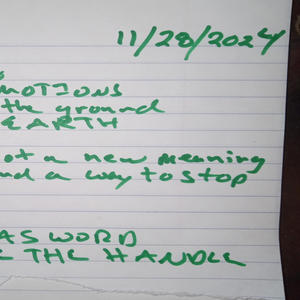 11/28/2024
MOTIONS
the ground
EARTH
ot a new meaning
nd a way to stop
AS WORD
THE HANDLE